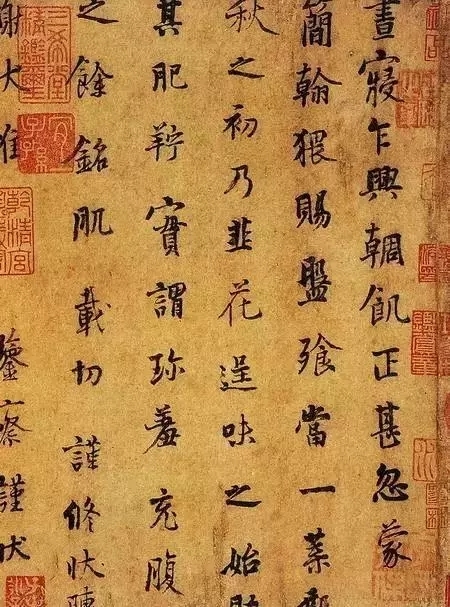 晝寢乍興輖飢正甚忽蒙
簡翰猥賜盤飧當一葉報
秋之初乃韭花逞味之始助
其肥羜實謂珍羞充腹
之餘銘肌載切謹修狀陳
謝伏惟鑒察謹狀
三希堂精鑑璽
宜子孫